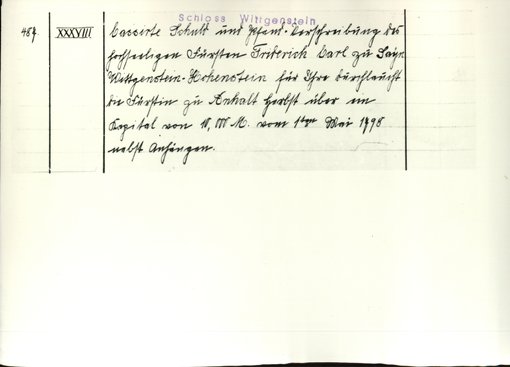 Schloss Wittgenstein
487 XXXVIII Cassierte Schuld und Pfand-Verschreibung des
hochseeligen Fürsten Friederich Carl zu Sayn
Wittgenstein-Hohenstein für Ihre Durchlaucht
die Fürstin zu Anhalt Zerbst über ein
Kapital von 10,000 M. vom 1ten Mai 1798
nebst Anhängen.